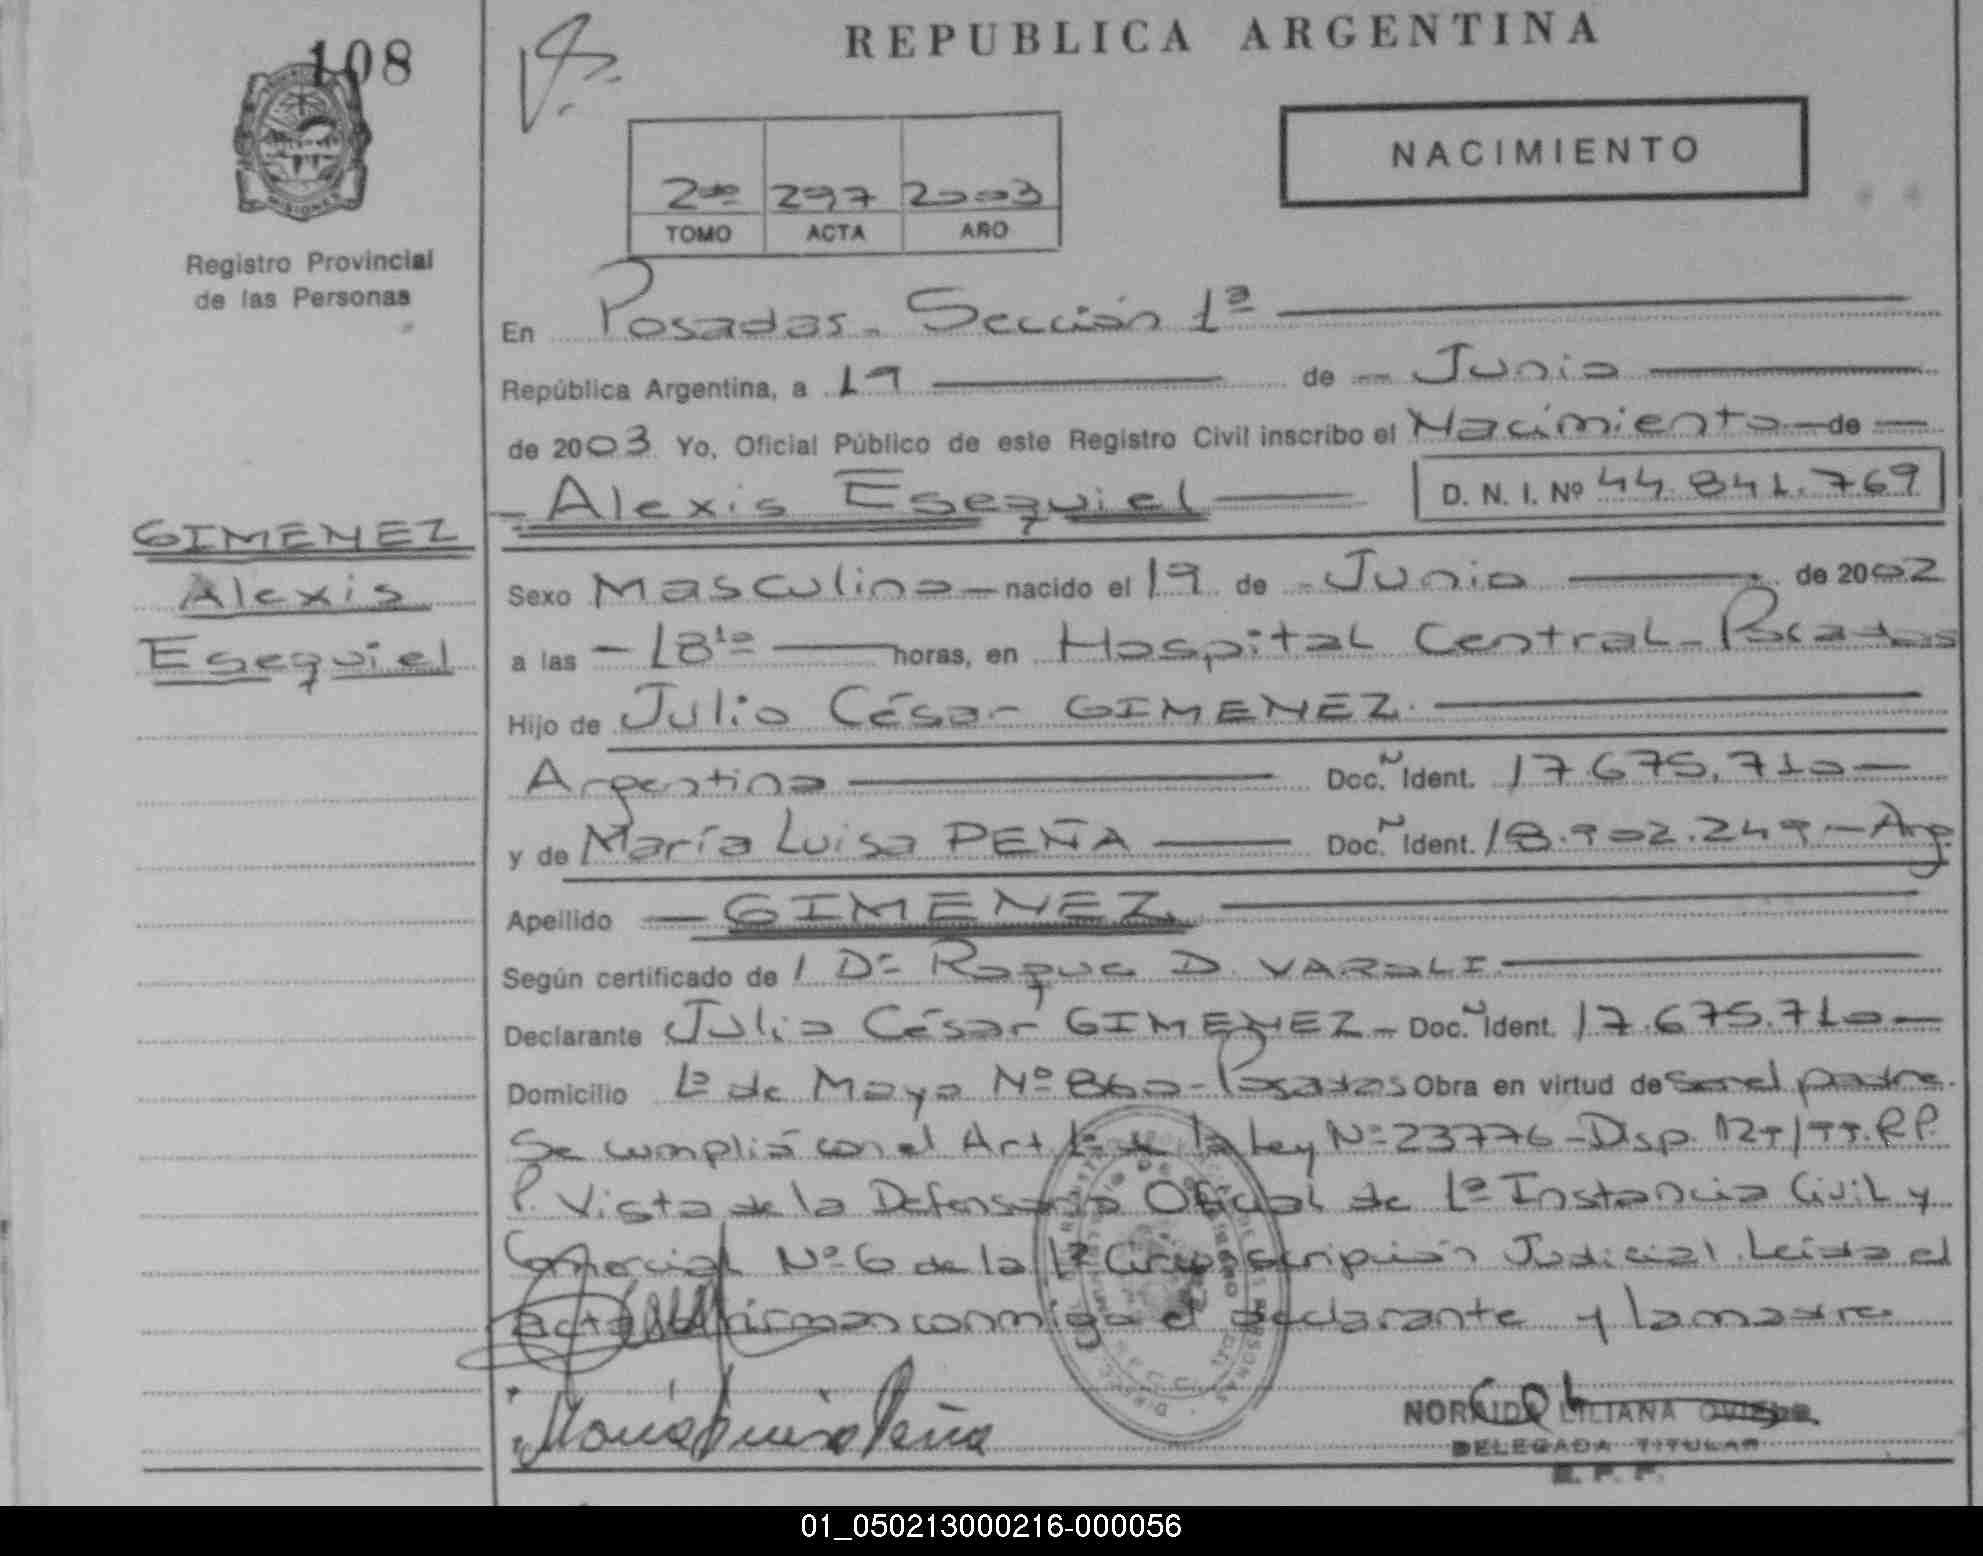 108
REPUBLICA ARGENTINA
NACIMIENTO
2do 297 2003
TOMO ACTA AÑO
MISIONES
Registro Provincial
de las Personas
En Posadas - Sección 1ª
República Argentina, a 19 de Junio
de 2003 Yo, Oficial Público de este Registro Civil inscribo el Nacimiento de
Alexis Esequiel D. N. I. Nº 44.841.769
GIMENEZ
Alexis
Esequiel
Sexo Masculino nacido el 19 de Junio de 2002
a las 18 10 horas, en Hospital Central - Posadas
Hijo de Julio César GIMENEZ
Argentina Doc. Ident. 17.675.710
y de María Luisa PEÑA Doc. Ident. 18.902.249 - Arg.
Apellido GIMENEZ
Según certificado de Dr Roque D. VAROLI
Declarante Julio César GIMENEZ - Doc. Ident. 17.675.710
Domicilio 1º de Mayo Nº 860 - Posadas Obra en virtud de ser el padre.
Se cumplió con el Art 1º de la Ley Nº 23776 - Disp. R.P.
P. Vista de la Defensoria Oficial de 1ª Instancia Civil y
Comercial Nº 6 de la 1ª Circunscripción Judicial. Leida el
acta firman conmigo el declarante y la madre
María Luisa Peña
NORAIDA LILIANA
DELEGADA TITULAR
R. P. P.
01_050213000216-000056